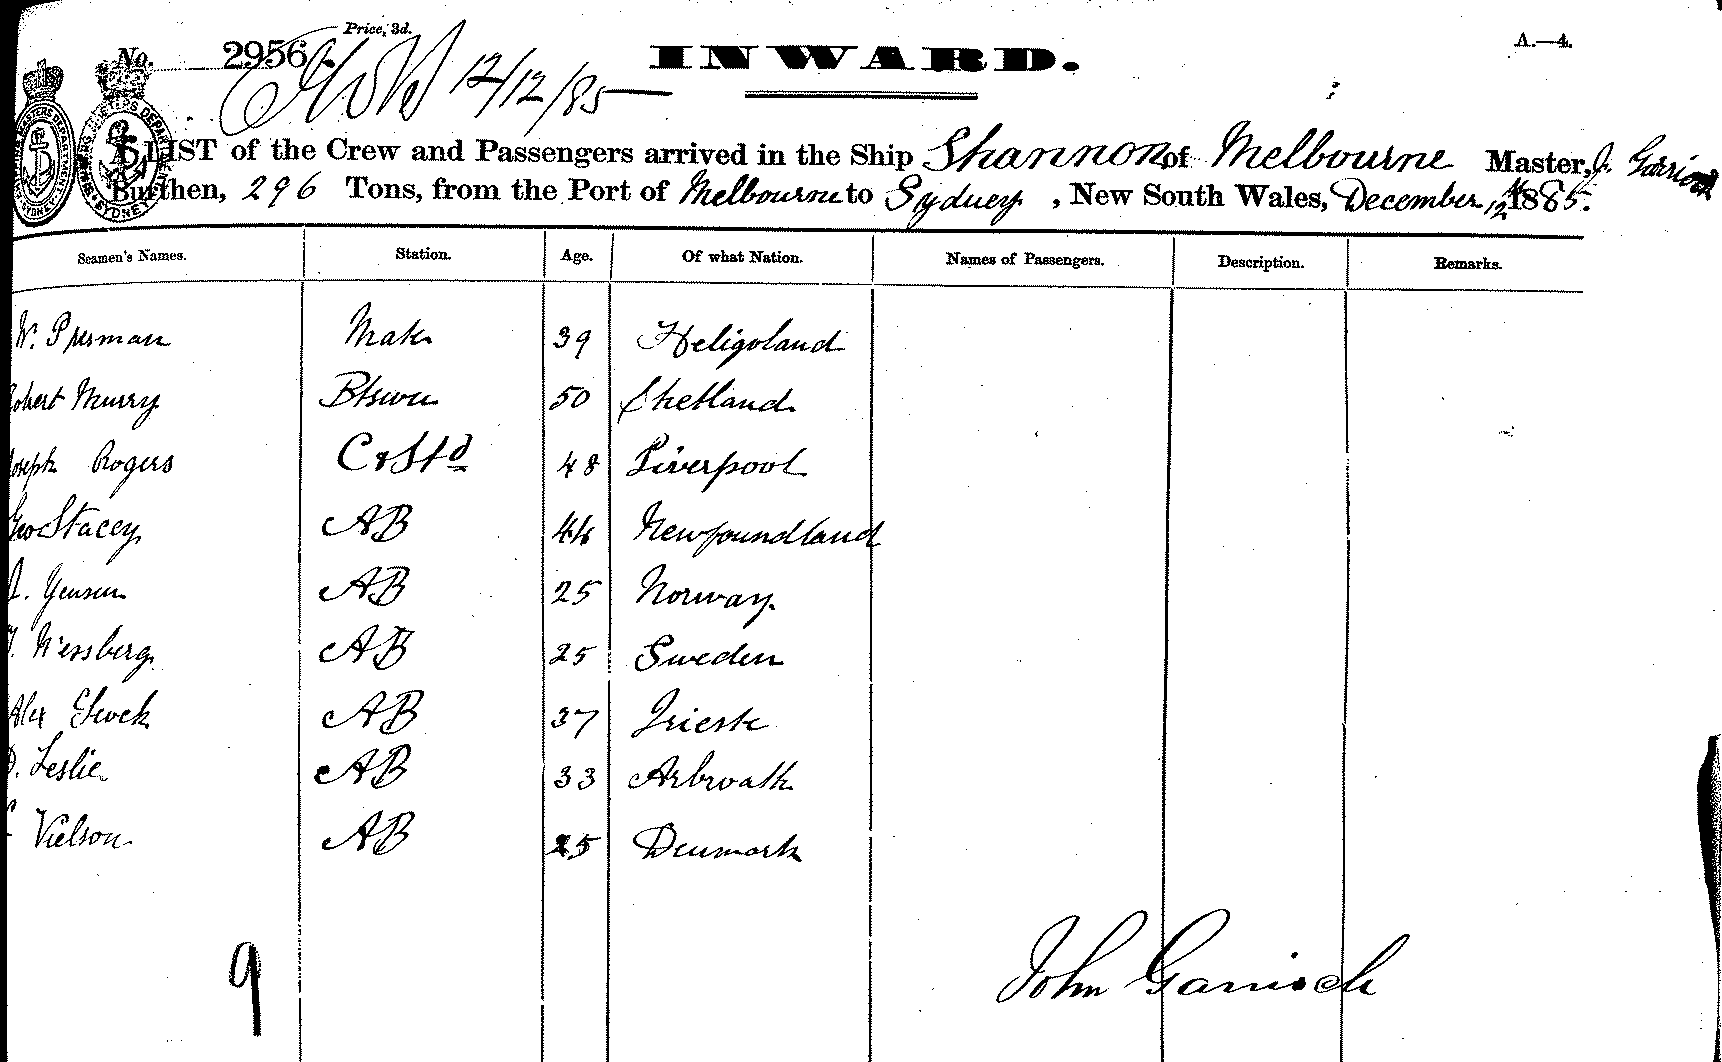 Price, 3d.
No. 2956 INWARD. A.—4.
12/12/85
A LIST of the Crew and Passengers arrived in the Ship Shannon of Melbourne Master, J.
Burthen, 296 Tons, from the Port of Melbourne to Sydney, New South Wales, December 12 1885.
Seamen's Names. Station. Age. Of what Nation. Names of Passengers. Description. Remarks.
W. Mate 39 Heligoland
Robert Murry Btswn 50 Shetland
Joseph Rogers C & Std 48 Liverpool
Geo Stacey AB 44 Newfoundland
J. Yensen AB 25 Norway
Wessberg AB 25 Sweden
Alex AB 37 Trieste
D. Leslie AB 33 Arbroath
AB 25 Denmark
9
John